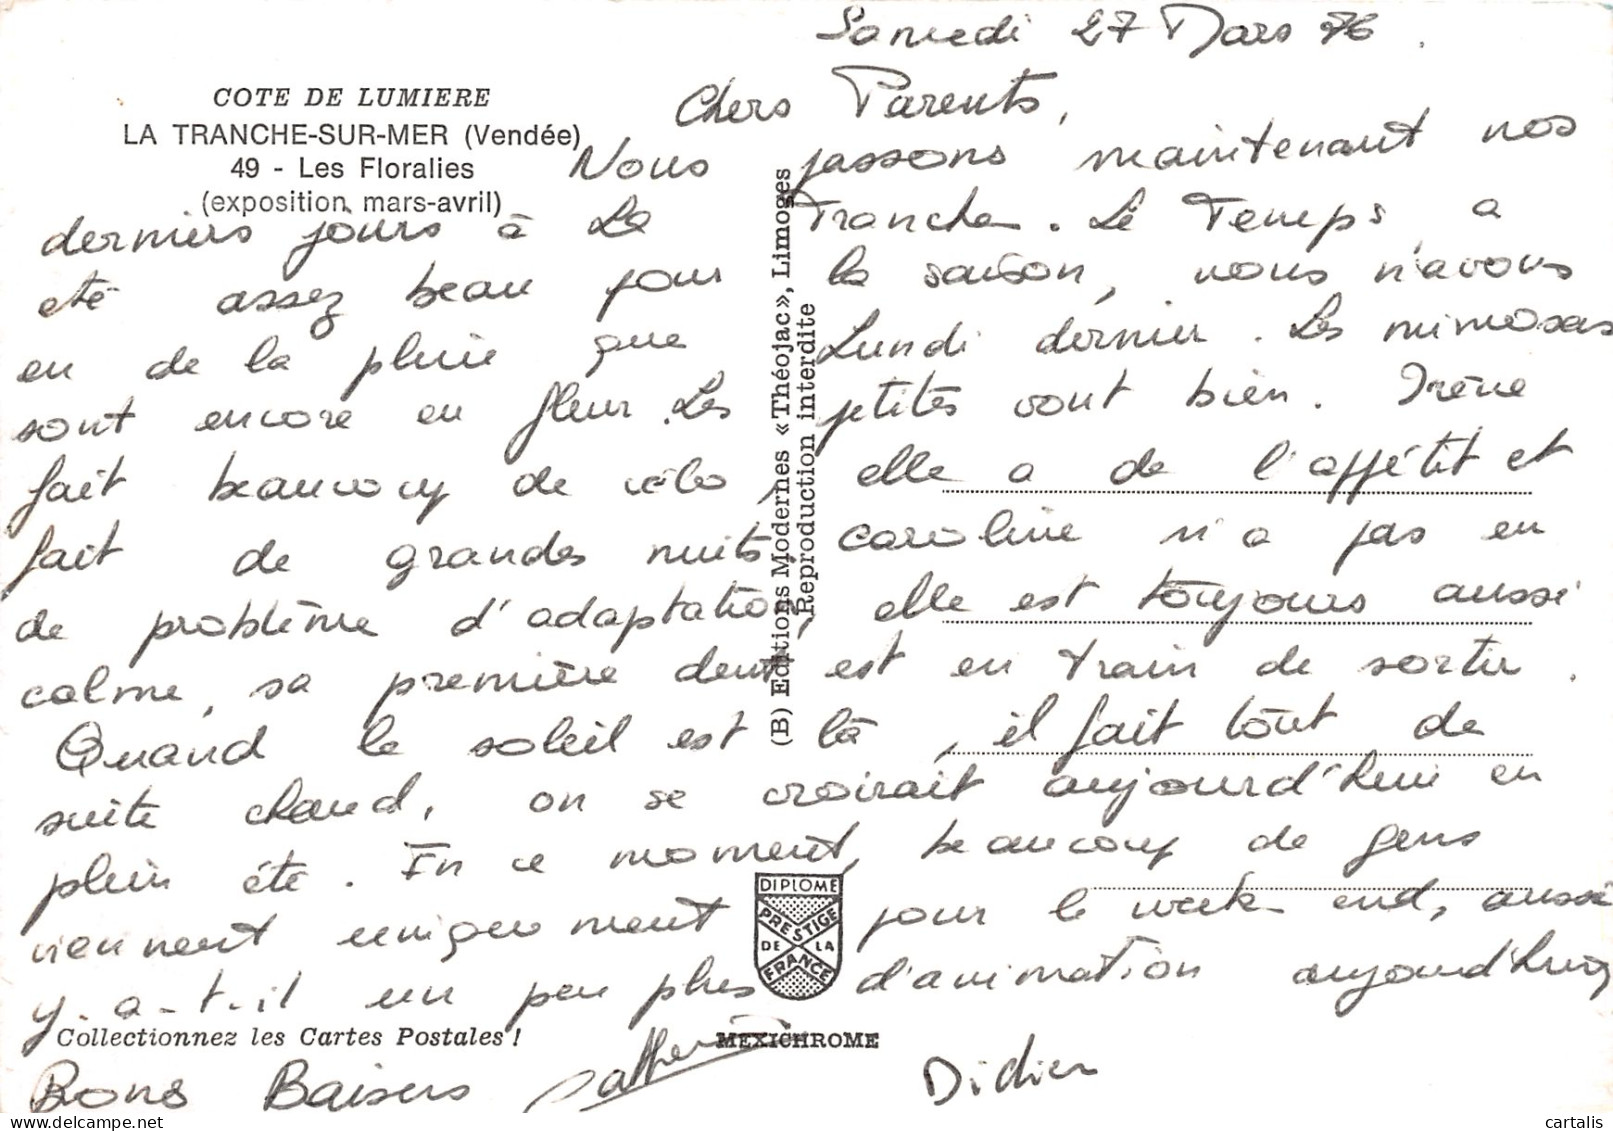 Samedi 27 Mars 76.
COTE DE LUMIERE
LA TRANCHE-SUR-MER (Vendée)
49 - Les Floralies
(exposition mars-avril)
Chers Parents,
Nous passons maintenant nos
derniers jours à La Tranche. Le Temps a
été assez beau pour la saison, nous n'avons
eu de la pluie que Lundi dernier. Les mimosas
sont encore en fleur. Les petites vont bien. Irène
fait beaucoup de vélo, elle a de l'appétit et
fait de grandes nuits, Caroline n'a pas eu
de problème d'adaptation, elle est toujours aussi
calme, sa première dent est en train de sortir.
Quand le soleil est là, il fait tout de
suite chaud, on se croirait aujourd'hui en
plein été. En ce moment, beaucoup de gens
viennent uniquement pour le week end, aussi
y-a-t-il un peu plus d'animation aujourd'hui
Bons Baisers Catherine Didier
(B) Editions Modernes «Théojac», Limoges
Reproduction interdite
DIPLOME
PRESTIGE
DE LA
FRANCE
Collectionnez les Cartes Postales !
MEXICHROME
cartalis